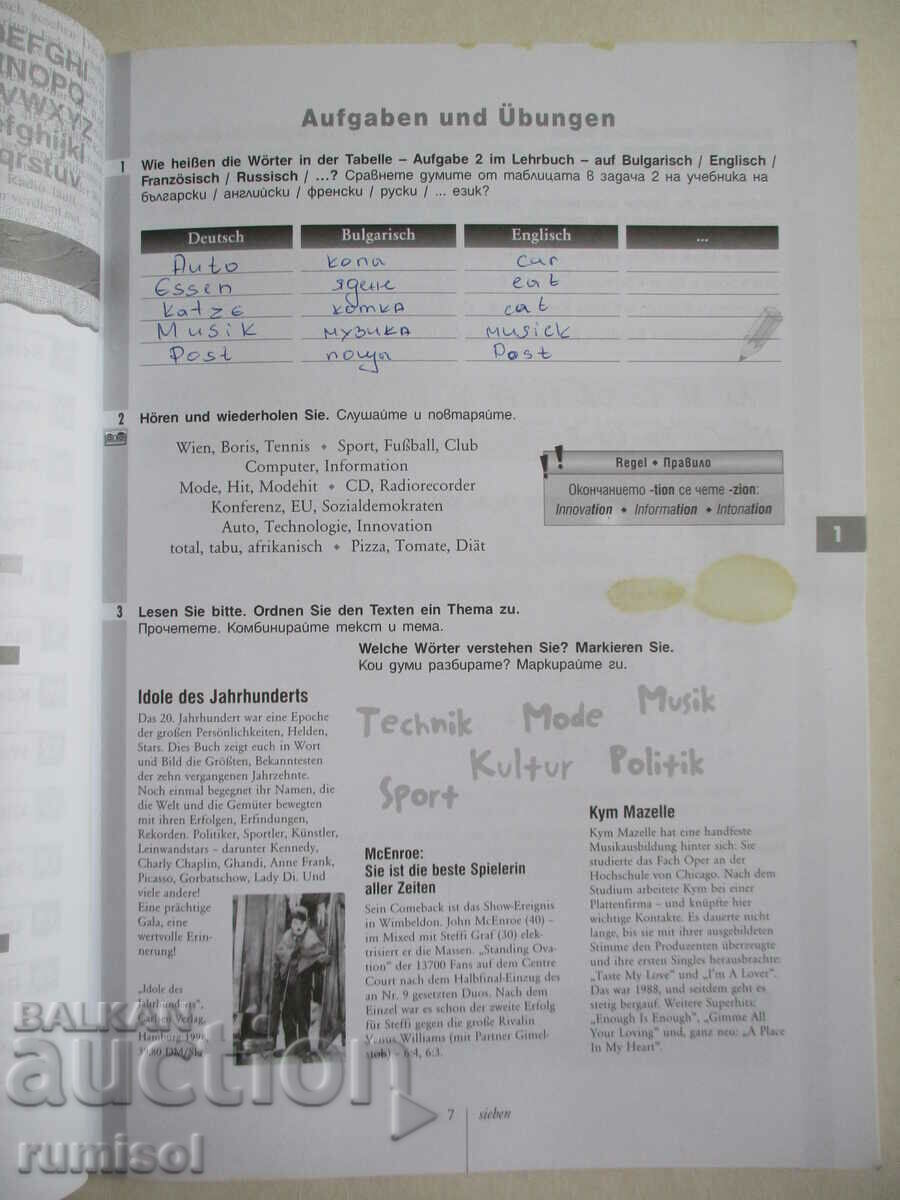 DEFGHI
efghijkl
qrstuv
Aufgaben und Übungen
1 Wie heißen die Wörter in der Tabelle – Aufgabe 2 im Lehrbuch – auf Bulgarisch / Englisch /
Französisch / Russisch / ...? Сравнете думите от таблицата в задача 2 на учебника на
български / английски / френски / руски / ... език?
Deutsch Bulgarisch Englisch ...
Auto кола car
Essen ядене eat
Katze котка cat
Musik музика musick
Post поща Post
2 Hören und wiederholen Sie. Слушайте и повтаряйте.
Wien, Boris, Tennis • Sport, Fußball, Club
Computer, Information
Mode, Hit, Modehit • CD, Radiorecorder
Konferenz, EU, Sozialdemokraten
Auto, Technologie, Innovation
total, tabu, afrikanisch • Pizza, Tomate, Diät
!! Regel • Правило
Окончанието -tion се чете -zion:
Innovation • Information • Intonation
1
3 Lesen Sie bitte. Ordnen Sie den Texten ein Thema zu.
Прочетете. Комбинирайте текст и тема.
Welche Wörter verstehen Sie? Markieren Sie.
Кои думи разбирате? Маркирайте ги.
Technik Mode Musik
Kultur Politik
Sport
Idole des Jahrhunderts
Das 20. Jahrhundert war eine Epoche
der großen Persönlichkeiten, Helden,
Stars. Dies Buch zeigt euch in Wort
und Bild die Größten, Bekanntesten
der zehn vergangenen Jahrzehnte.
Noch einmal begegnet ihr Namen, die
die Welt und die Gemüter bewegten
mit ihren Erfolgen, Erfindungen,
Rekorden. Politiker, Sportler, Künstler,
Leinwandstars – darunter Kennedy,
Charly Chaplin, Ghandi, Anne Frank,
Picasso, Gorbatschow, Lady Di. Und
viele andere!
Eine prächtige
Gala, eine
wertvolle Erin-
nerung!
„Idole des
Jahrhunderts",
Carlsen Verlag,
Hamburg
McEnroe:
Sie ist die beste Spielerin
aller Zeiten
Sein Comeback ist das Show-Ereignis
in Wimbeldon. John McEnroe (40) –
im Mixed mit Steffi Graf (30) elek-
trisiert er die Massen. „Standing Ova-
tion" der 13700 Fans auf dem Centre
Court nach dem Halbfinal-Einzug des
an Nr. 9 gesetzten Duos. Nach dem
Einzel war es schon der zweite Erfolg
für Steffi gegen die große Rivalin
Venus Williams (mit Partner Gimel-
stob) – 6:4, 6:3.
Kym Mazelle
Kym Mazelle hat eine handfeste
Musikausbildung hinter sich: Sie
studierte das Fach Oper an der
Hochschule von Chicago. Nach dem
Studium arbeitete Kym bei einer
Plattenfirma – und knüpfte hier
wichtige Kontakte. Es dauerte nicht
lange, bis sie mit ihrer ausgebildeten
Stimme den Produzenten überzeugte
und ihre ersten Singles herausbrachte:
„Taste My Love" und „I'm A Lover".
Das war 1988, und seitdem geht es
stetig bergauf. Weitere Superhits:
„Enough Is Enough", „Gimme All
Your Loving" und, ganz neu: „A Place
In My Heart".
7 sieben
BALKAN
auction
rumisol